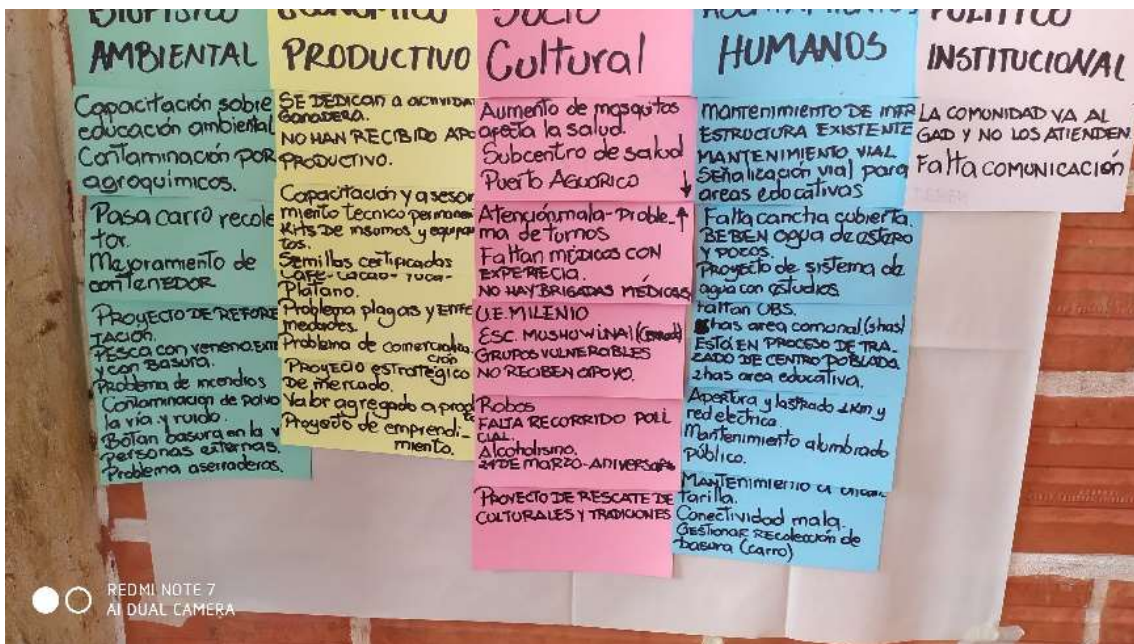 BIOFISICO
AMBIENTAL
Capacitación sobre
educación ambiental
Contaminación por
agroquímicos.
Pasa carro recolec
tor.
Mejoramiento de
contenedor
PROYECTO DE REFORE
TACIÓN.
PESCA CON VENENO. EXTE
y con BASURA.
Problema de incendios
Contaminacion de polvo
la via y ruido.
Botan basura en la v
personas externas.
Problema aserraderos.
ECONOMICO
PRODUCTIVO
SE DEDICAN a actividad
GANADERA.
NO HAN RECIBIDO APO
PRODUCTIVO.
Capacitación y asesor
miento tecnico permanen
Kits De insumos y equipam
tos.
Semillas certificadas
Cafe-Cacao-Yuca-
Plátano.
Problema plagas y ENFE
medades.
Problema de comercializa
ción
PROYECTO estratégico
De mercado.
Valor agregado a prod
Proyecto de emprendi-
miento.
SOCIO
Cultural
Aumento de mosquitos
afecta la salud.
Subcentro de salud
Puerto AGUARICO
Atención mala-Proble-
ma de turnos
Faltan MÉDICOS CON
EXPERECIA.
NO HAY BRIGADAS MÉDICAS,
U.E. MILENIO
ESC. MUSHOWINAI
GRUPOS VULNERABLES
NO RECIBEN APOYO.
Robos
FALTA RECORRIDO POLI
CIAL.
Alcoholismo.
24 DE MARZO-ANIVERSARIO
PROYECTO DE RESCATE DE
CULTURALES Y TRADICIONES
ASENTAMIENTOS
HUMANOS
Mantenimiento DE INFR
ESTRUCTURA EXISTENTE
MANTENIMIENTO VIAL
Señalización vial para
areas educativas
Falta cancha cubierta.
BEBEN agua de estero
y pozos.
Proyecto de sistema de
agua con estudios.
Faltan UBS.
has area comunal (5has)
ESTÁ EN PROCESO DE TRA
ZADO DE CENTRO POBLADO
2has area educativa.
Apertura y lastrado 2Km y
red eléctrica.
Mantenimiento alumbrado
público.
MANTENIMIENTO
tarilla.
Conectividad mala.
GESTIONAR RECOLECCIÓN de
basura (carro)
POLITICO
INSTITUCIONAL
LA COMUNIDAD VA AL
GAD Y NO LOS ATIENDEN.
Falta COMUNICACIÓN
REDMI NOTE 7
AI DUAL CAMERA